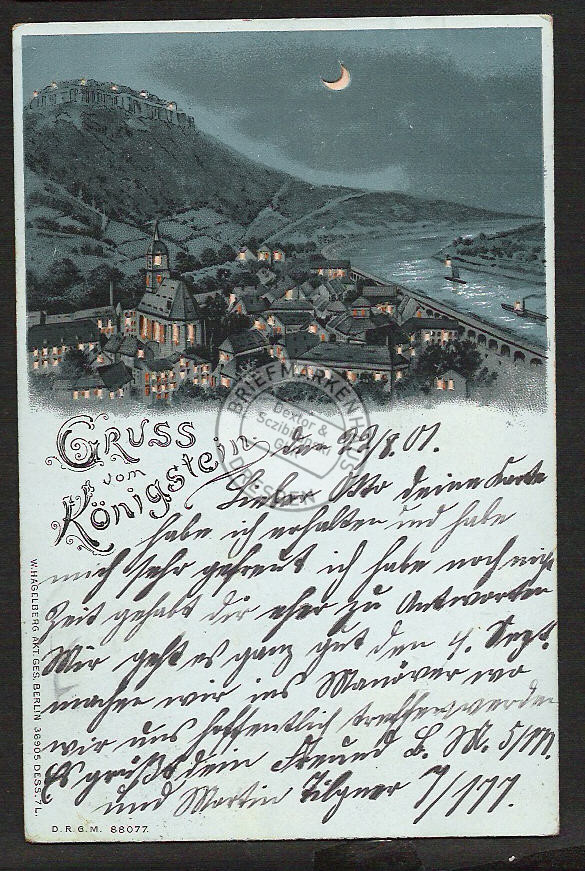 GRUSS
vom
Königstein.
den 29/8.01.
Lieber Otto deine Karte
habe ich erhalten und habe
mich sehr gefreut ich habe noch nicht
Zeit gehabt dir eher zu Antworten
Mir geht es ganz gut den 4. Sept.
machen wir ins Manöver wo
wir uns hoffentlich treffen werden
Es grüßt dein Freund
und Martin Tilgner 7/177.
W. HAGELBERG AKT. GES. BERLIN 36905 DESS. 7 L.
D.R.G.M. 88077.
BRIEFMARKENHAUS
Dextor &
DRESDEN